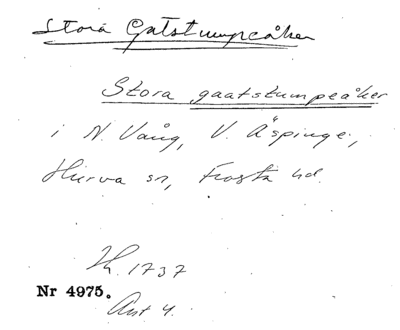 Stora Gatstumpeåker
Stora gaatstumpeåker
i N. Vång, V. Äspinge,
Hurva sn, Frosta hd.
Lh. 1737
Nr 4975.
Ant 4.